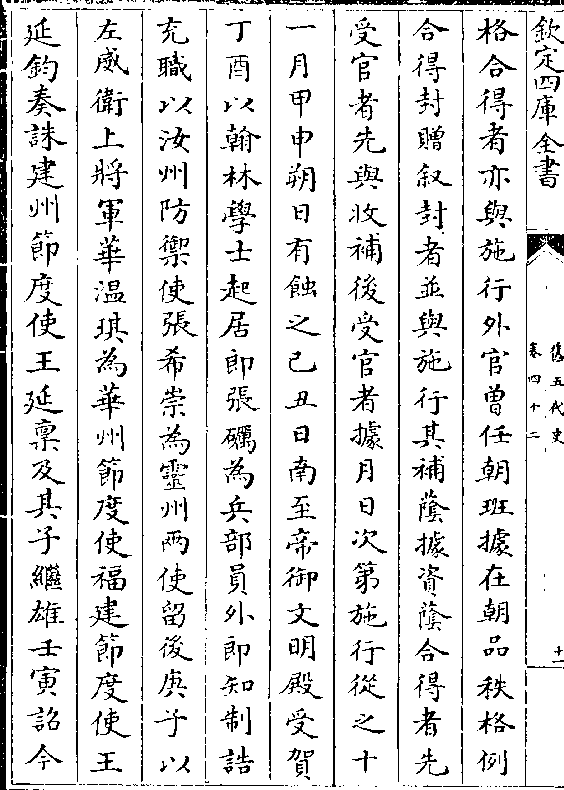 欽定四庫全書
舊五代史
卷四十二
十一
格合得者亦與施行外官曽任朝班據在朝品秩格例
合得封贈叙封者並與施行其補蔭據資蔭合得者先
受官者先與收補後受官者據月日次第施行從之十
一月甲申朔日有蝕之己丑日南至帝御文明殿受賀
丁酉以翰林學士起居郎張礪為兵部員外郎知制誥
充職以汝州防禦使張希崇為靈州兩使留後庚子以
左威衛上將軍華温琪為華州節度使福建節度使王
延鈞奏誅建州節度使王延禀及其子繼雄壬寅詔今